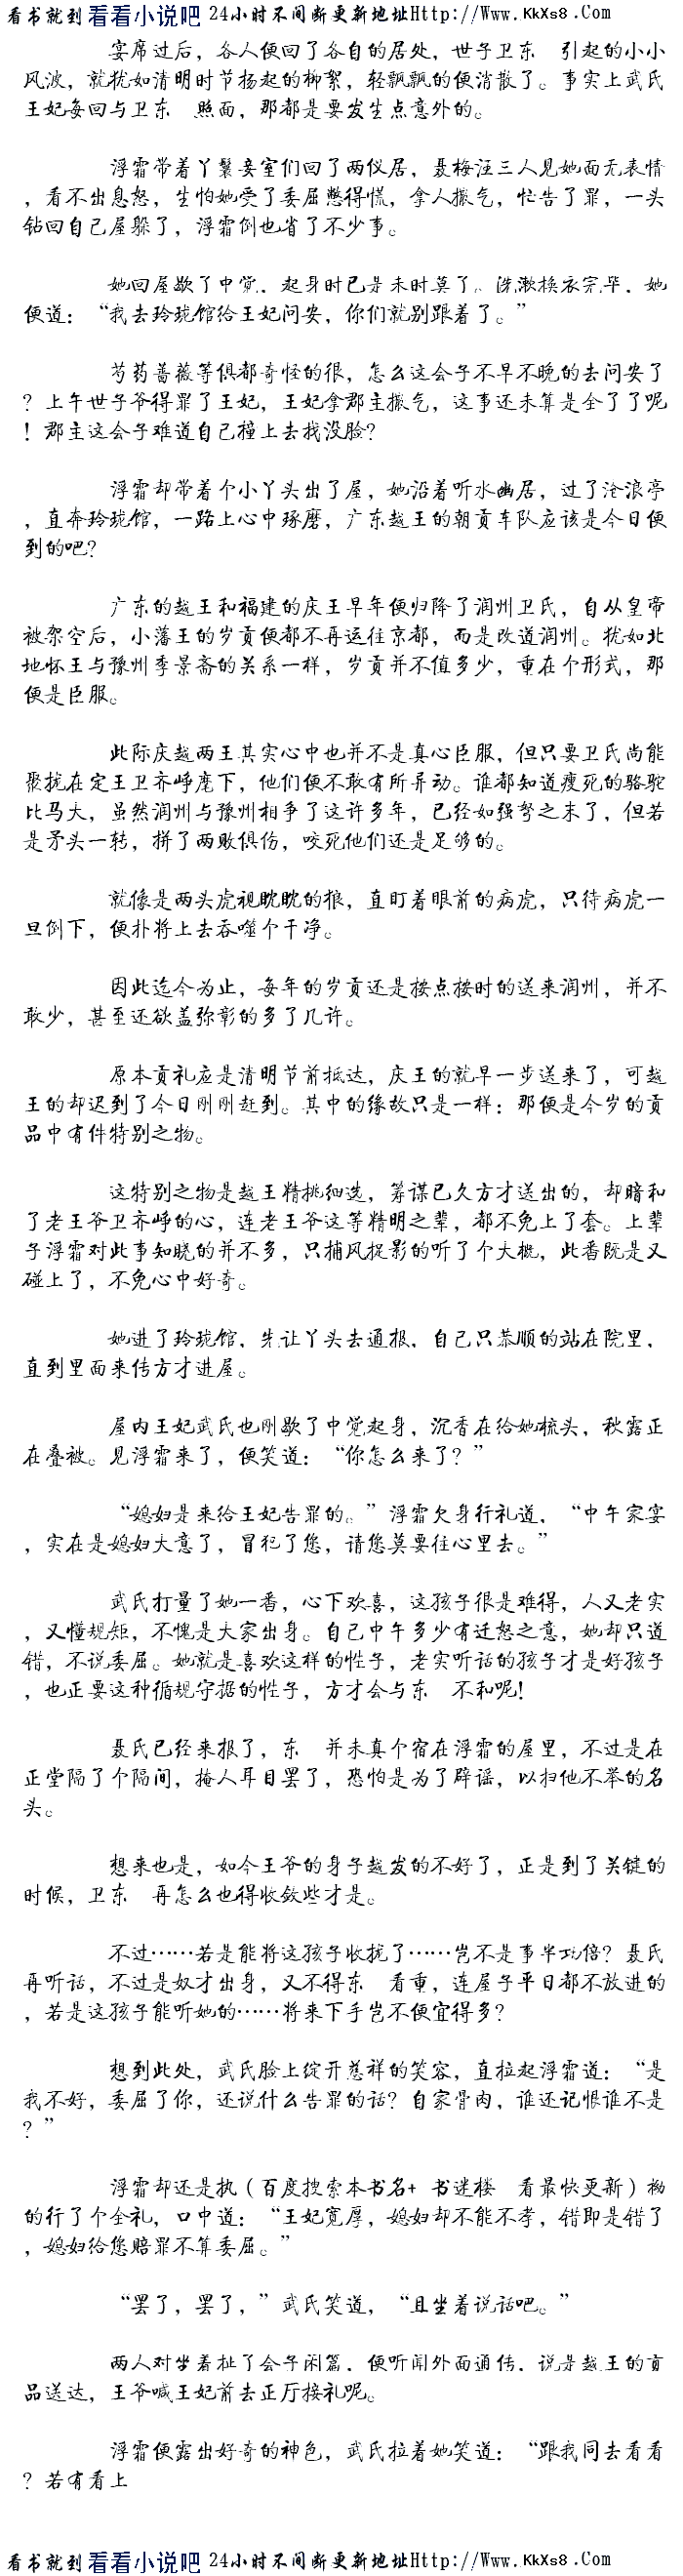 看书就到看看小说吧 24小时不间断更新地址Http://Www.KkXs8.Com
宴席过后，各人便回了各自的居处，世子卫东　引起的小小
风波，就犹如清明时节扬起的柳絮，轻飘飘的便消散了。事实上武氏
王妃每回与卫东　照面，那都是要发生点意外的。
浮霜带着丫鬟妾室们回了两仪居，聂梅汪三人见她面无表情
，看不出息怒，生怕她受了委屈憋得慌，拿人撒气，忙告了罪，一头
钻回自己屋躲了，浮霜倒也省了不少事。
她回屋歇了中觉，起身时已是未时莫了。洗漱换衣完毕，她
便道：“我去玲珑馆给王妃问安，你们就别跟着了。”
芍药蔷薇等俱都奇怪的很，怎么这会子不早不晚的去问安了
？上午世子爷得罪了王妃，王妃拿郡主撒气，这事还未算是全了了呢
！郡主这会子难道自己撞上去找没脸？
浮霜却带着个小丫头出了屋，她沿着听水幽居，过了沧浪亭
，直奔玲珑馆，一路上心中琢磨，广东越王的朝贡车队应该是今日便
到的吧？
广东的越王和福建的庆王早年便归降了润州卫氏，自从皇帝
被架空后，小藩王的岁贡便都不再运往京都，而是改道润州。犹如北
地怀王与豫州季景斋的关系一样，岁贡并不值多少，重在个形式，那
便是臣服。
此际庆越两王其实心中也并不是真心臣服，但只要卫氏尚能
聚拢在定王卫齐峥麾下，他们便不敢有所异动。谁都知道瘦死的骆驼
比马大，虽然润州与豫州相争了这许多年，已经如强弩之末了，但若
是矛头一转，拼了两败俱伤，咬死他们还是足够的。
就像是两头虎视眈眈的狼，直盯着眼前的病虎，只待病虎一
旦倒下，便扑将上去吞噬个干净。
因此迄今为止，每年的岁贡还是按点按时的送来润州，并不
敢少，甚至还欲盖弥彰的多了几许。
原本贡礼应是清明节前抵达，庆王的就早一步送来了，可越
王的却迟到了今日刚刚赶到。其中的缘故只是一样：那便是今岁的贡
品中有件特别之物。
这特别之物是越王精挑细选，筹谋已久方才送出的，却暗和
了老王爷卫齐峥的心，连老王爷这等精明之辈，都不免上了套。上辈
子浮霜对此事知晓的并不多，只捕风捉影的听了个大概，此番既是又
碰上了，不免心中好奇。
她进了玲珑馆，先让丫头去通报，自己只恭顺的站在院里，
直到里面来传方才进屋。
屋内王妃武氏也刚歇了中觉起身，沉香在给她梳头，秋露正
在叠被。见浮霜来了，便笑道：“你怎么来了？”
“媳妇是来给王妃告罪的。”浮霜欠身行礼道，“中午家宴
，实在是媳妇大意了，冒犯了您，请您莫要往心里去。”
武氏打量了她一番，心下欢喜，这孩子很是难得，人又老实
，又懂规矩，不愧是大家出身。自己中午多少有迁怒之意，她却只道
错，不说委屈。她就是喜欢这样的性子，老实听话的孩子才是好孩子
，也正要这种循规守据的性子，方才会与东　不和呢！
聂氏已经来报了，东　并未真个宿在浮霜的屋里，不过是在
正堂隔了个隔间，掩人耳目罢了，恐怕是为了辟谣，以扫他不举的名
头。
想来也是，如今王爷的身子越发的不好了，正是到了关键的
时候，卫东　再怎么也得收敛些才是。
不过……若是能将这孩子收拢了……岂不是事半功倍？聂氏
再听话，不过是奴才出身，又不得东　看重，连屋子平日都不放进的
，若是这孩子能听她的……将来下手岂不便宜得多？
想到此处，武氏脸上绽开慈祥的笑容，直拉起浮霜道：“是
我不好，委屈了你，还说什么告罪的话？自家骨肉，谁还记恨谁不是
？”
浮霜却还是执（百度搜索本书名+ 书迷楼　看最快更新）拗
的行了个全礼，口中道：“王妃宽厚，媳妇却不能不孝，错即是错了
，媳妇给您赔罪不算委屈。”
“罢了，罢了，”武氏笑道，“且坐着说话吧。”
两人对坐着扯了会子闲篇，便听闻外面通传，说是越王的贡
品送达，王爷喊王妃前去正厅接礼呢。
浮霜便露出好奇的神色，武氏拉着她笑道：“跟我同去看看
？若有看上
看书就到看看小说吧 24小时不间断更新地址Http://Www.KkXs8.Com